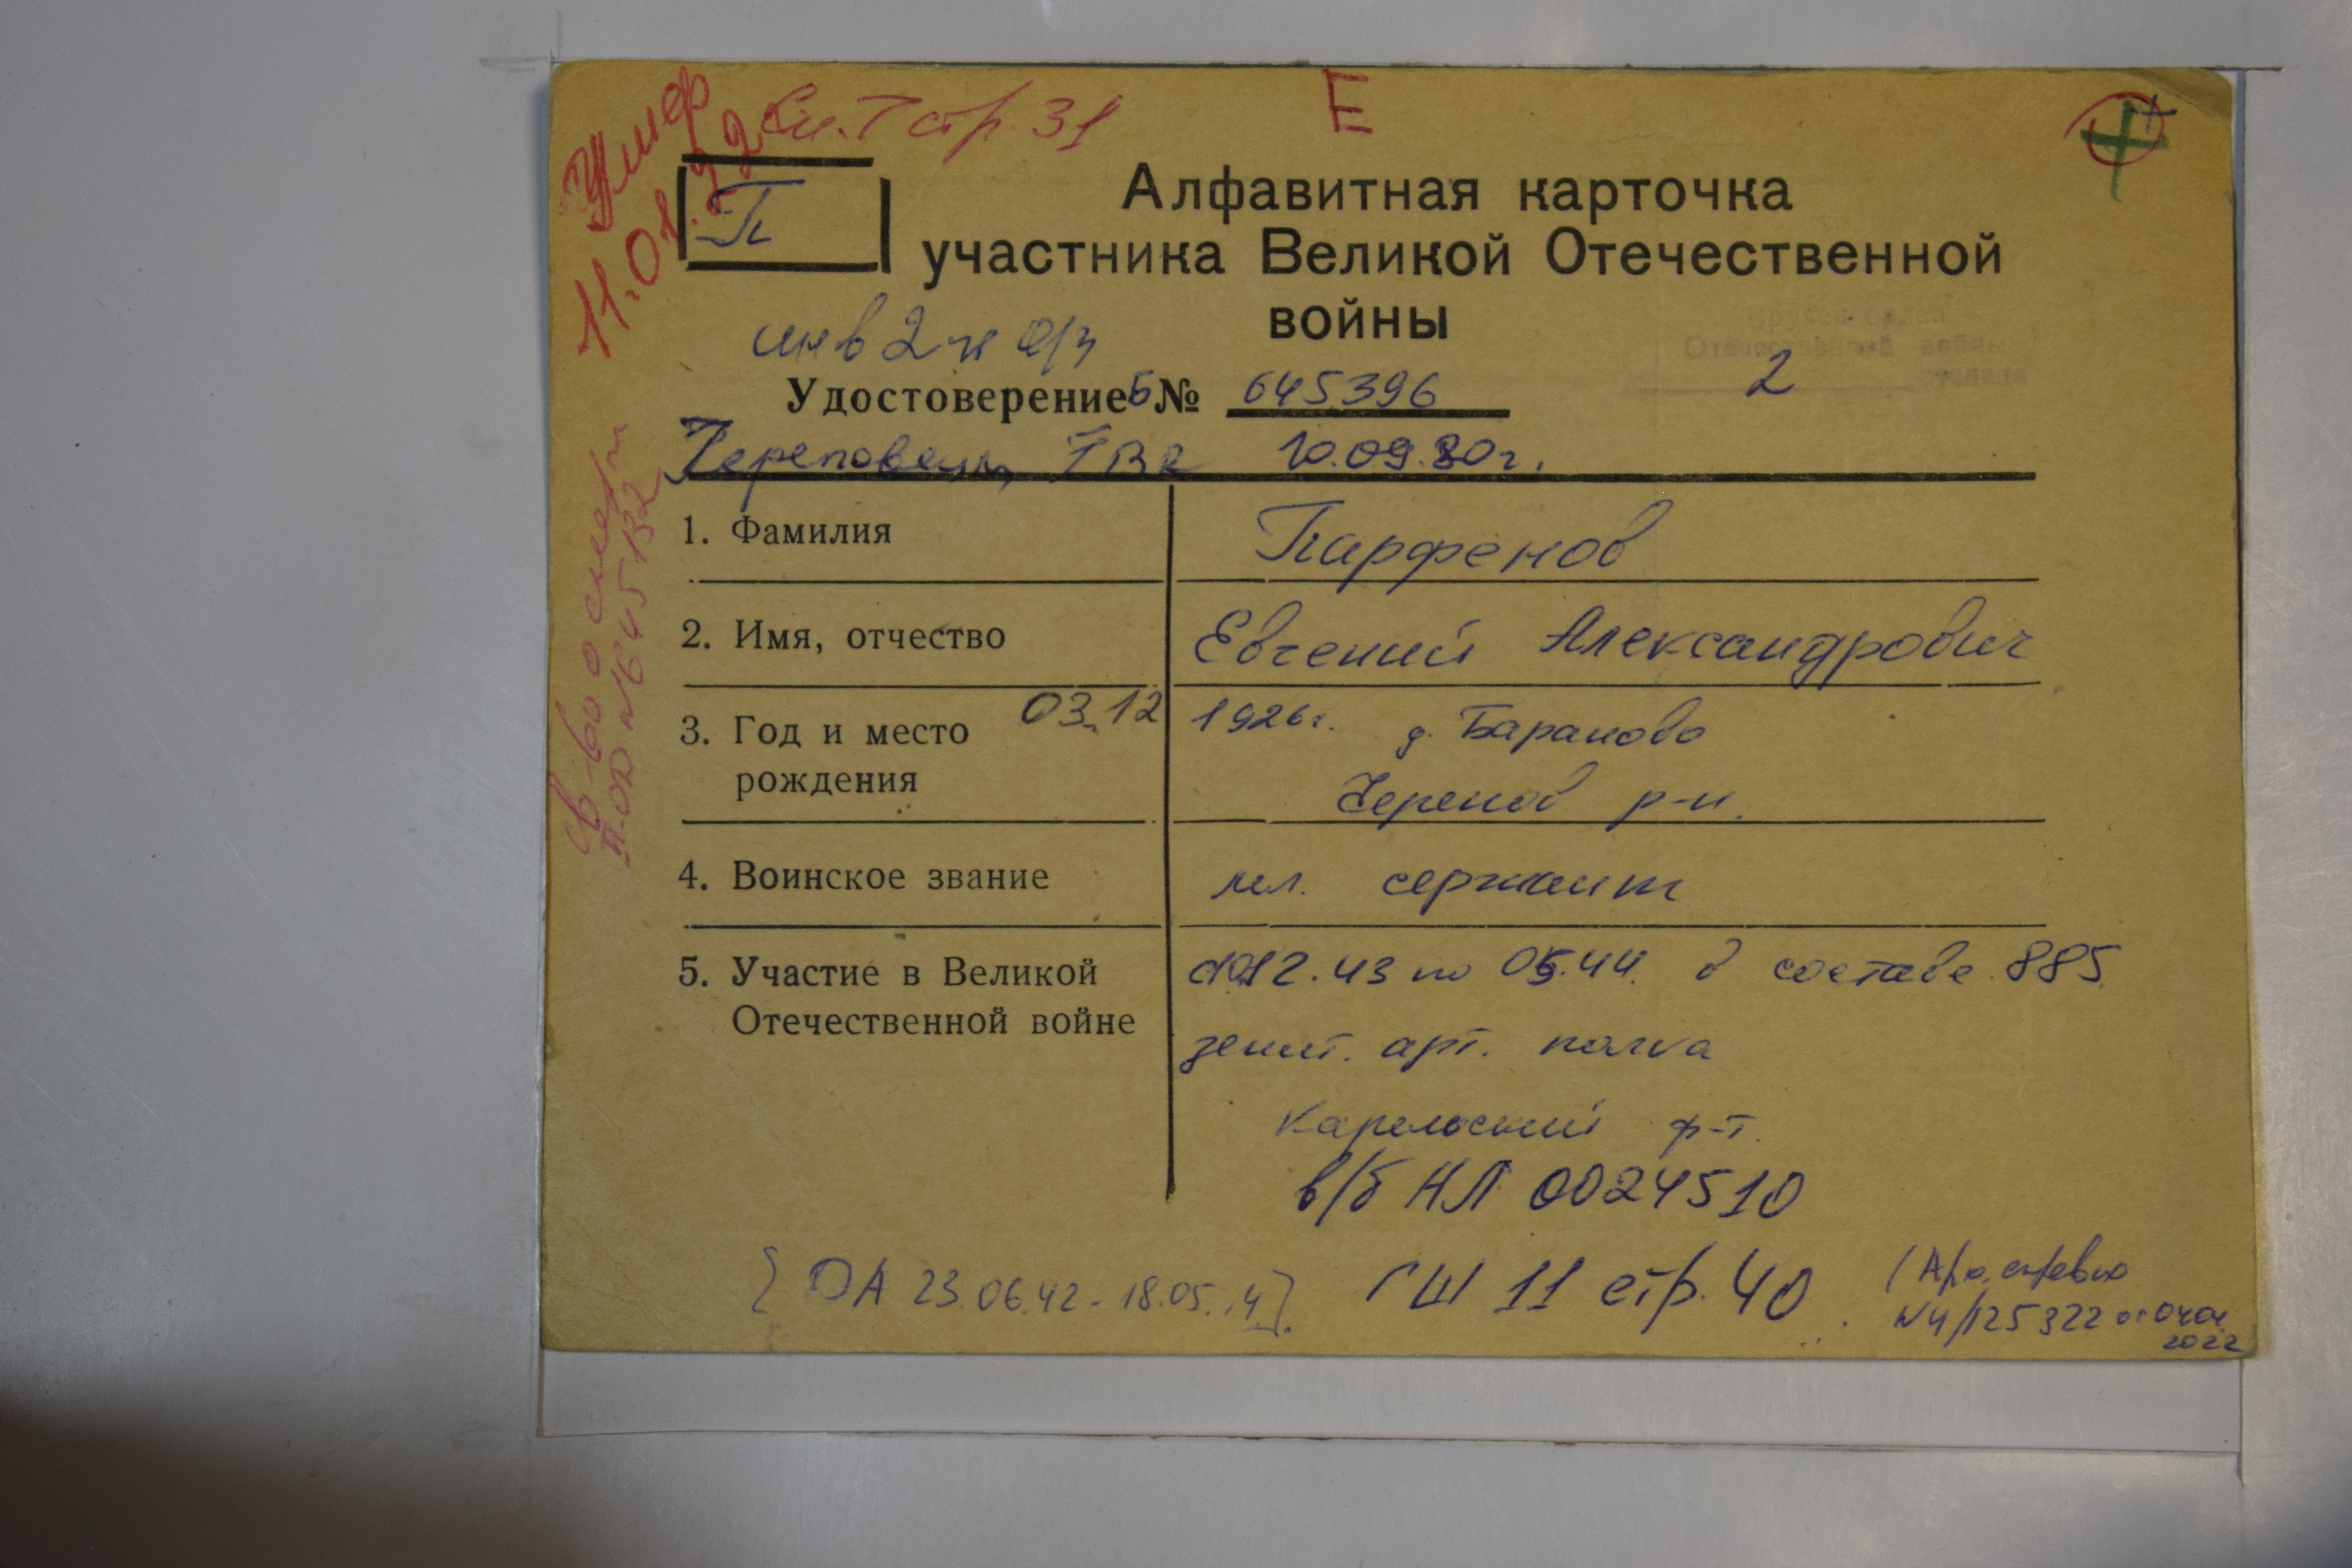 Умер
11.01.92
См. Т стр. 31
Е
П
Алфавитная карточка
участника Великой Отечественной
войны
инв 2 н о/з
Удостоверение Б № 645396
2
Череповецк ГВК 10.09.80г.
св-во о смерти
II-ОД №645132
1. Фамилия Парфенов
2. Имя, отчество Евгений Александрович
3. Год и место 03.12 1926г. д. Бараново
рождения Черепов р-н.
4. Воинское звание мл. сержант
5. Участие в Великой 12.43 по 05.44. в составе 885
Отечественной войне зенит. арт. полка
Карельский ф-т.
в/б НЛ 0024510
[ОА 23.06.42 - 18.05.44].
ГШ 11 стр. 40
№4/125322 от
2022